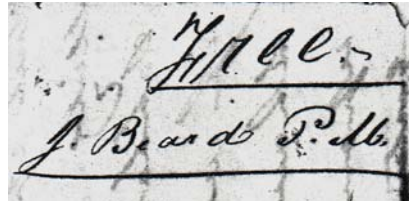 Free.-
J. Beard P.M.